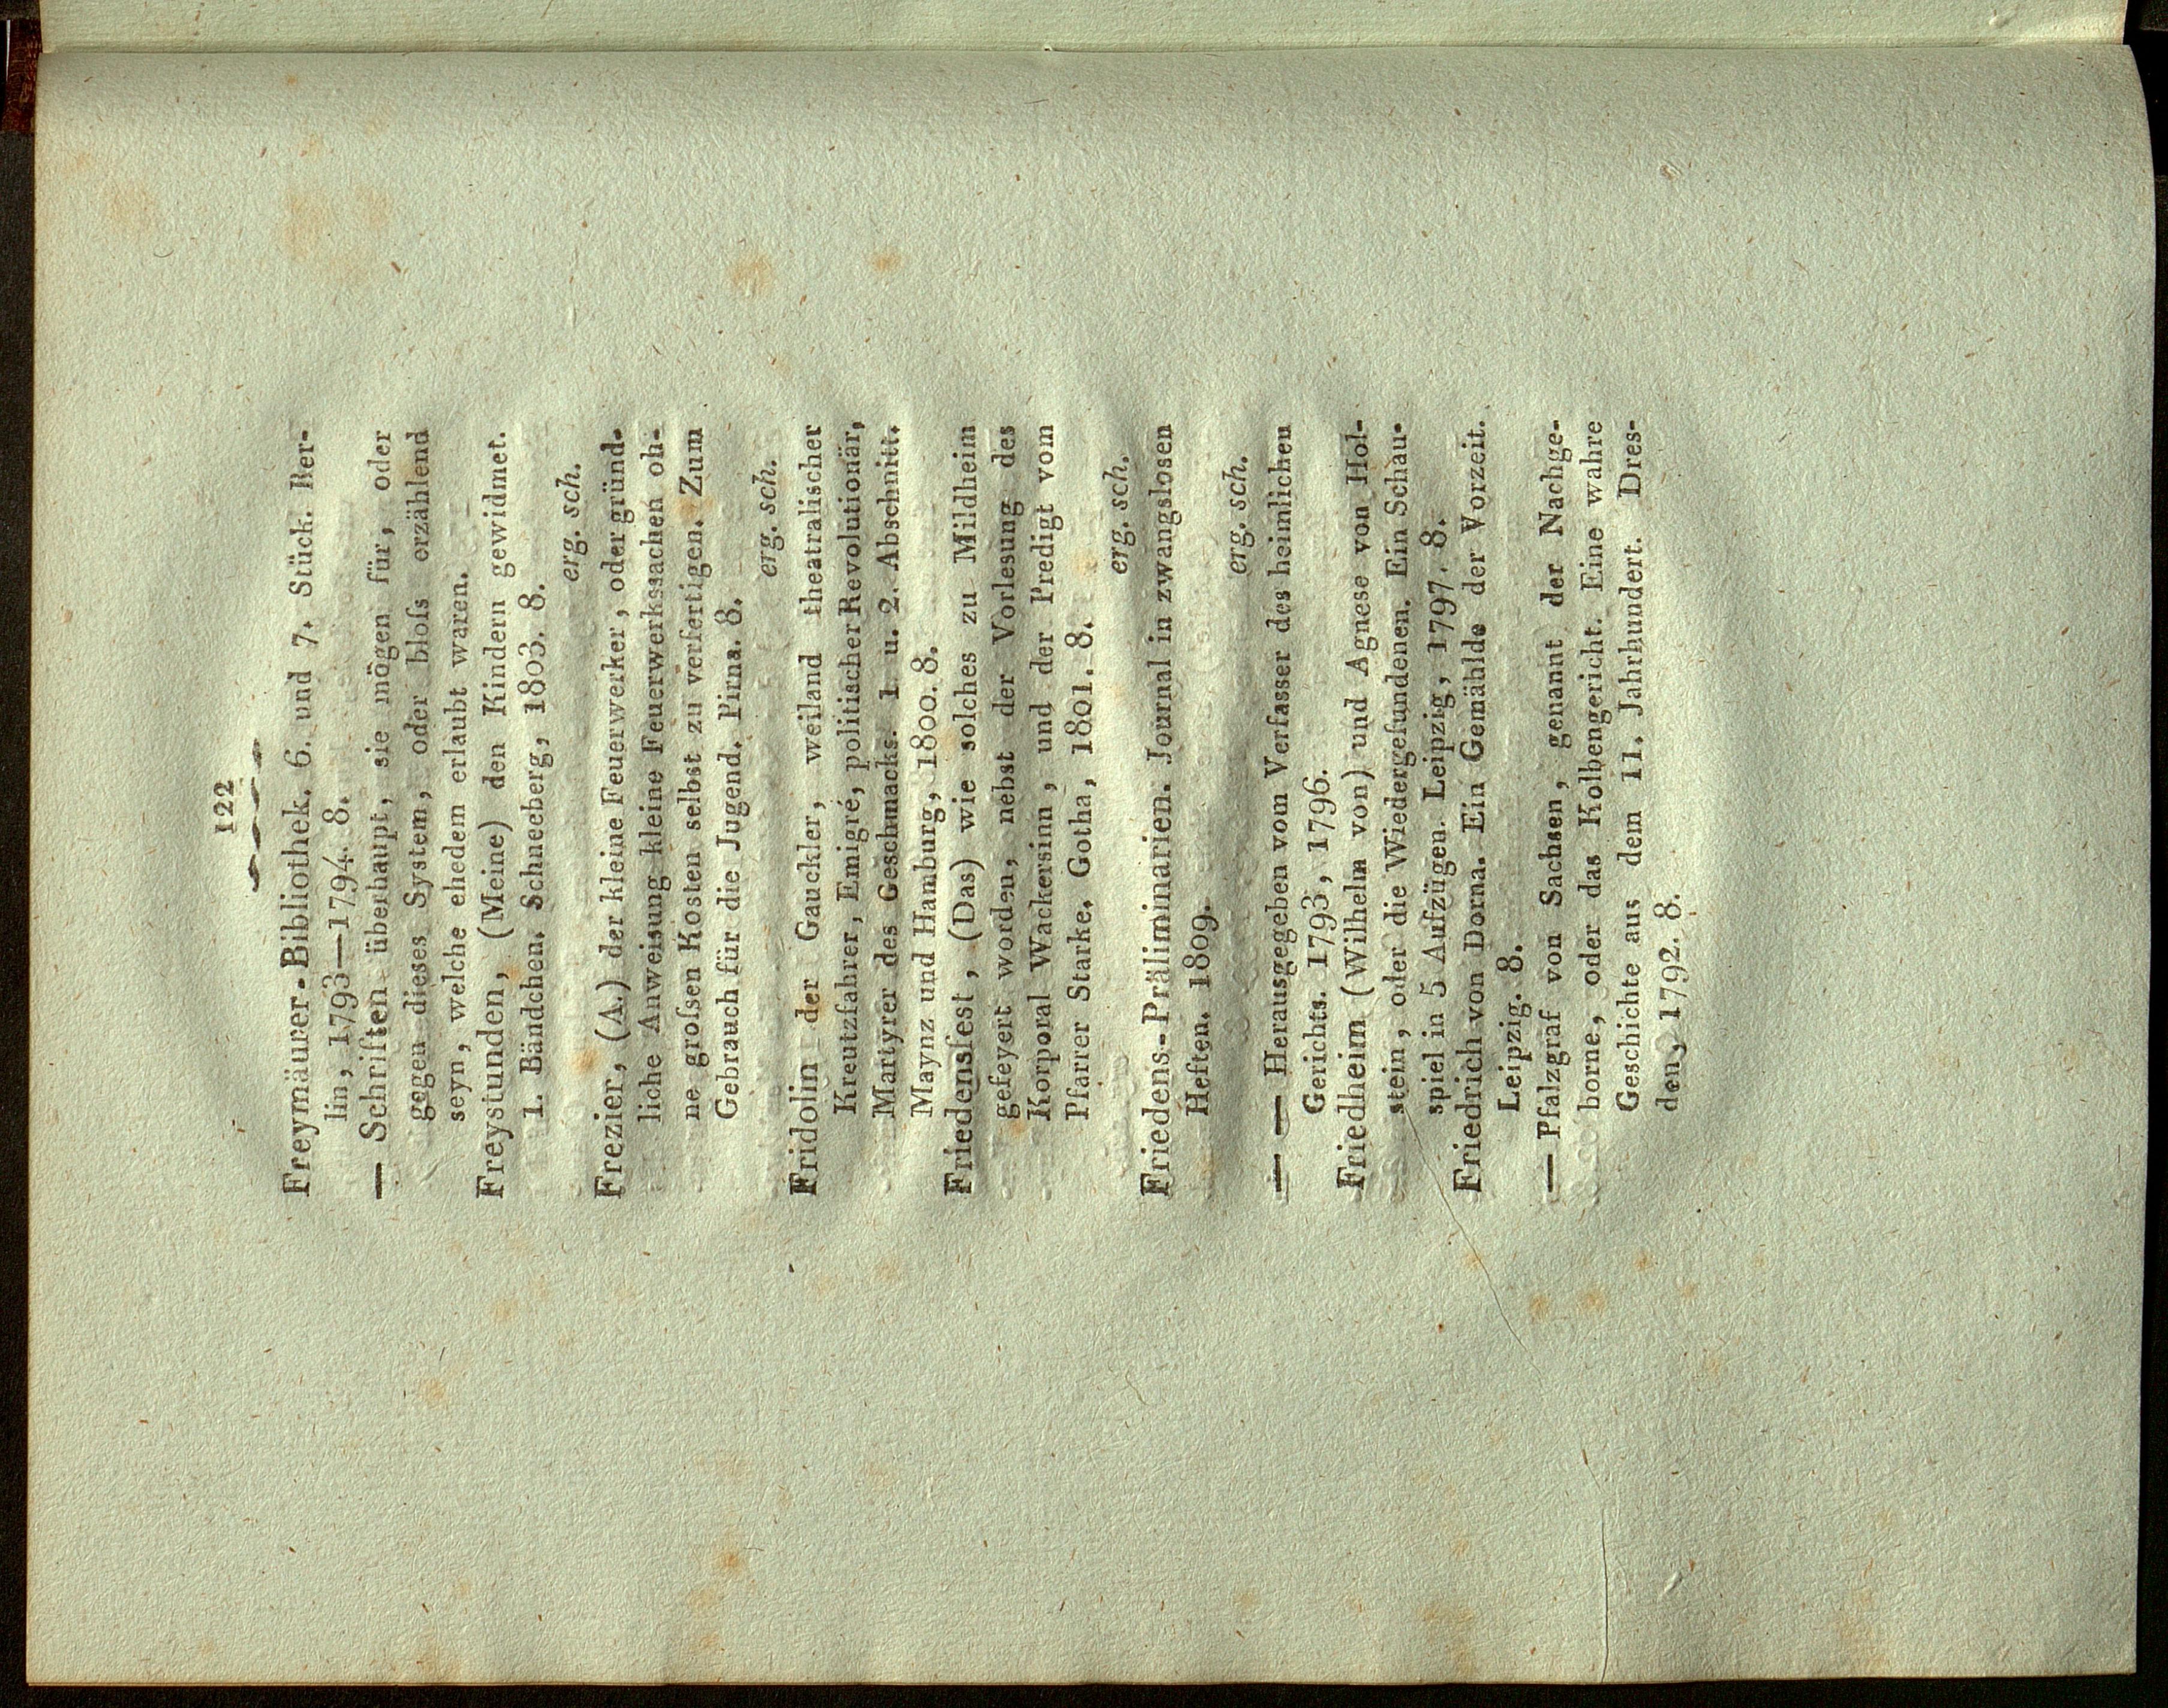 122
Freymäurer-Bibliothek. 6. und 7. Stück. Ber-
lin, 1793—1794. 8.
— Schriften überhaupt, sie mögen für, oder
gegen dieses System, oder bloſs erzählend
seyn, welche ehedem erlaubt waren.
Freystunden, (Meine) den Kindern gewidmet.
1. Bändchen. Schneeberg, 1803. 8.
erg. sch.
Frezier, (A.) der kleine Feuerwerker, oder gründ-
liche Anweisung kleine Feuerwerkssachen oh-
ne groſsen Kosten selbst zu verfertigen. Zum
Gebrauch für die Jugend. Pirna. 8.
erg. sch.
Fridolin der Gauckler, weiland theatralischer
Kreutzfahrer, Emigré, politischer Revolutionär,
Martyrer des Geschmacks. 1. u. 2. Abschnitt.
Maynz und Hamburg, 1800. 8.
Friedensfest, (Das) wie solches zu Mildheim
gefeyert worden, nebst der Vorlesung des
Korporal Wackersinn, und der Predigt vom
Pfarrer Starke. Gotha, 1801. 8.
erg. sch.
Friedens-Präliminarien. Journal in zwangslosen
Heften. 1809.
erg. sch.
— — Herausgegeben vom Verfasser des heimlichen
Gerichts. 1793, 1796.
Friedheim (Wilhelm von) und Agnese von Hol-
stein, oder die Wiedergefundenen. Ein Schau-
spiel in 5 Aufzügen. Leipzig, 1797. 8.
Friedrich von Dorna. Ein Gemählde der Vorzeit.
Leipzig. 8.
— Pfalzgraf von Sachsen, genannt der Nachge-
borne, oder das Kolbengericht. Eine wahre
Geschichte aus dem 11. Jahrhundert. Dres-
den, 1792. 8.